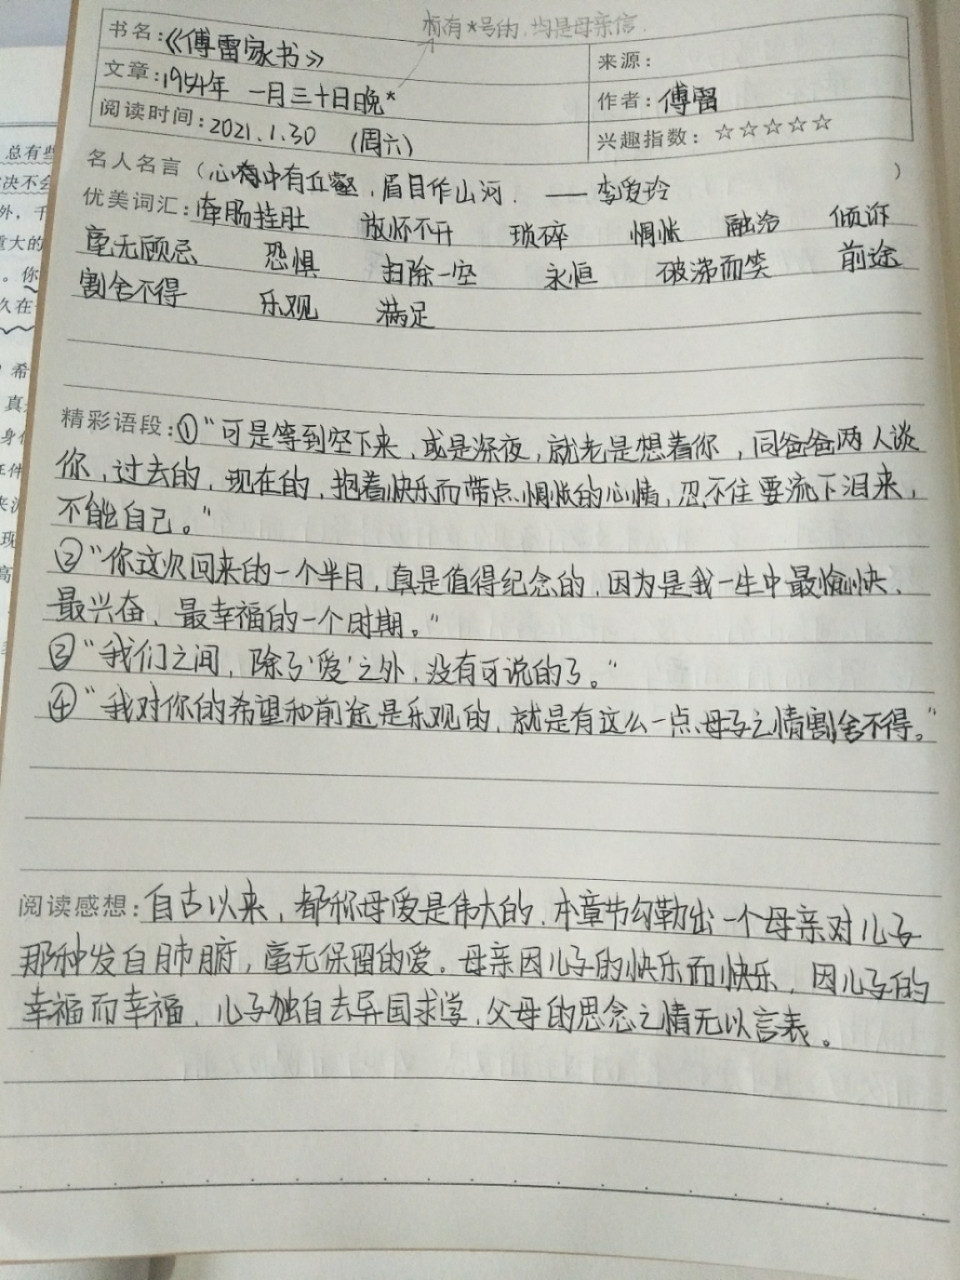 标有*号的,均是母亲信.
书名:《傅雷家书》
来源:
文章:1954年 一月三十日晚*
作者:傅雷
阅读时间:2021.1.30 (周六)
兴趣指数:☆☆☆☆☆
名人名言(心中有丘壑,眉目作山河. ——李爱玲)
优美词汇:牵肠挂肚 放怀不开 琐碎 惆怅 融洽 倾诉
毫无顾忌 恐惧 扫除一空 永恒 破涕而笑 前途
割舍不得 乐观 满足
精彩语段:①"可是等到空下来,或是深夜,就老是想着你,同爸爸两人谈
你,过去的,现在的,抱着快乐而带点惆怅的心情,忍不住要流下泪来,
不能自己。"
②"你这次回来的一个半月,真是值得纪念的,因为是我一生中最愉快、
最兴奋、最幸福的一个时期。"
③"我们之间,除了'爱'之外,没有可说的了。"
④"我对你的希望和前途是乐观的,就是有这么一点母子之情割舍不得。"
阅读感想:自古以来,都称母爱是伟大的.本章节勾勒出一个母亲对儿子
那种发自肺腑,毫无保留的爱。母亲因儿子的快乐而快乐,因儿子的
幸福而幸福,儿子独自去异国求学,父母的思念之情无以言表。
总有些
决不会
外,千
重大的
。你
久在
希
身体
证件
来
现
高